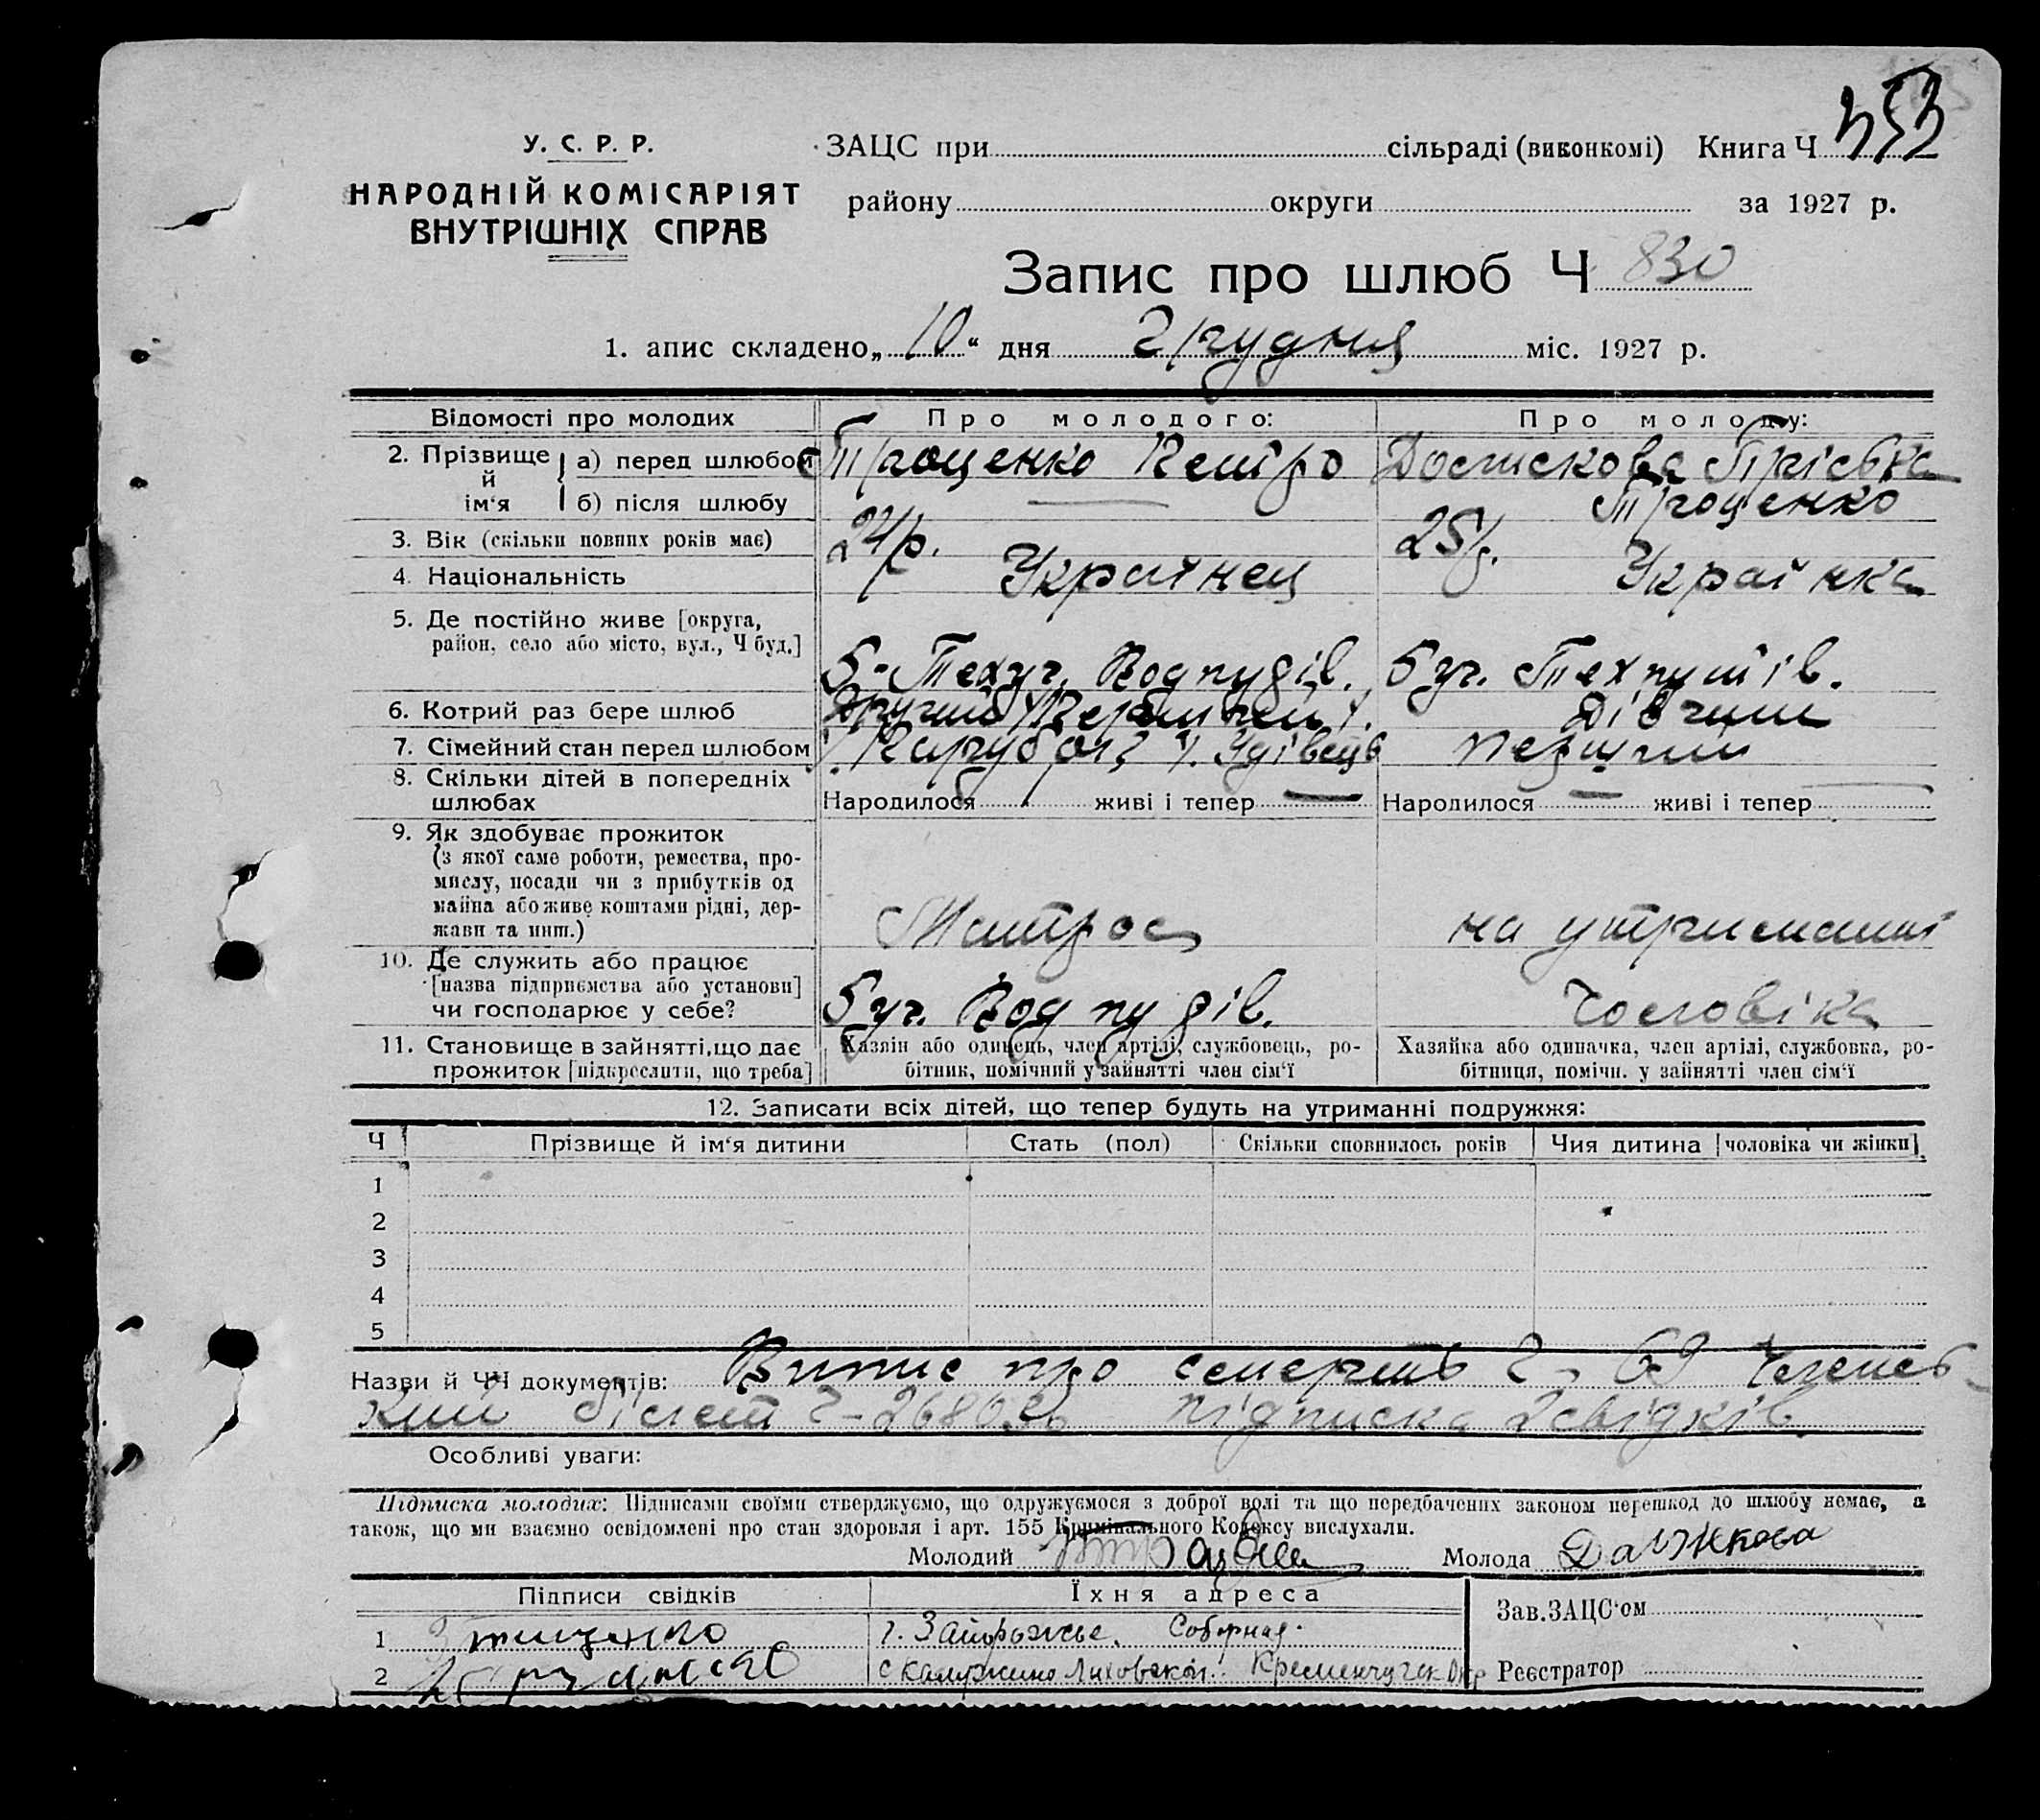 У. С. Р. Р.
НАРОДНІЙ КОМІСАРІЯТ
ВНУТРІШНІХ СПРАВ
ЗАЦС при сільраді (виконкомі) Книга Ч 353
району округи за 1927 р.
Запис про шлюб Ч 830
1. апис складено „10“ дня Грудня міс. 1927 р.
Відомості про молодих
Про молодого:
Про молоду:
2. Прізвище й ім‘я
а) перед шлюбом
Троценко Петро
Пріська
б) після шлюбу
—
Троценко
3. Вік (скільки повних років має)
24/р.
25/р.
4. Національність
Українец
Українка
5. Де постійно живе [округа, район, село або місто, вул., Ч буд.]
5-Техуч. Водпудів.
5 уч. Техпутів.
6. Котрий раз бере шлюб
Другий
Дівчина
7. Сімейний стан перед шлюбом
Удівець
перший
8. Скільки дітей в попередніх шлюбах
Народилося живі і тепер —
Народилося — живі і тепер —
9. Як здобуває прожиток
(з якої саме роботи, ремества, промислу, посади чи з прибутків од майна або живе коштами рідні, держави та инш.)
Матрос
на утриманні
10. Де служить або працює
[назва підприємства або установи]
чи господарює у себе?
5 уч. Водпудів.
Чоловіка
11. Становище в зайнятті, що дає прожиток [підкреслити, що треба]
Хазяїн або одинець, член артілі, службовець, робітник, помічний у зайнятті член сім‘ї
Хазяйка або одиначка, член артілі, службовка, робітниця, помічн. у зайнятті член сім‘ї
12. Записати всіх дітей, що тепер будуть на утриманні подружжя:
Ч Прізвище й ім‘я дитини Стать (пол) Скільки сповнилось років Чия дитина [чоловіка чи жінки]
1
2
3
4
5
Назви й ЧЧ документів: Випис про смерть Ч- 69 Членськ-
ий білет Ч- підписка 2 свідків.
Особливі уваги:
Підписка молодих: Підписами своїми стверджуємо, що одружуємося з доброї волі та що передбачених законом перешкод до шлюбу немає, а
також, що ми взаємно освідомлені про стан здоровля і арт. 155 Кримінального Кодексу вислухали.
Молодий
Молода
Підписи свідків
Їхня адреса
Зав. ЗАЦС‘ом
1
г. Запорожье, Соборная.
2
Кременчугск Окр
Реєстратор